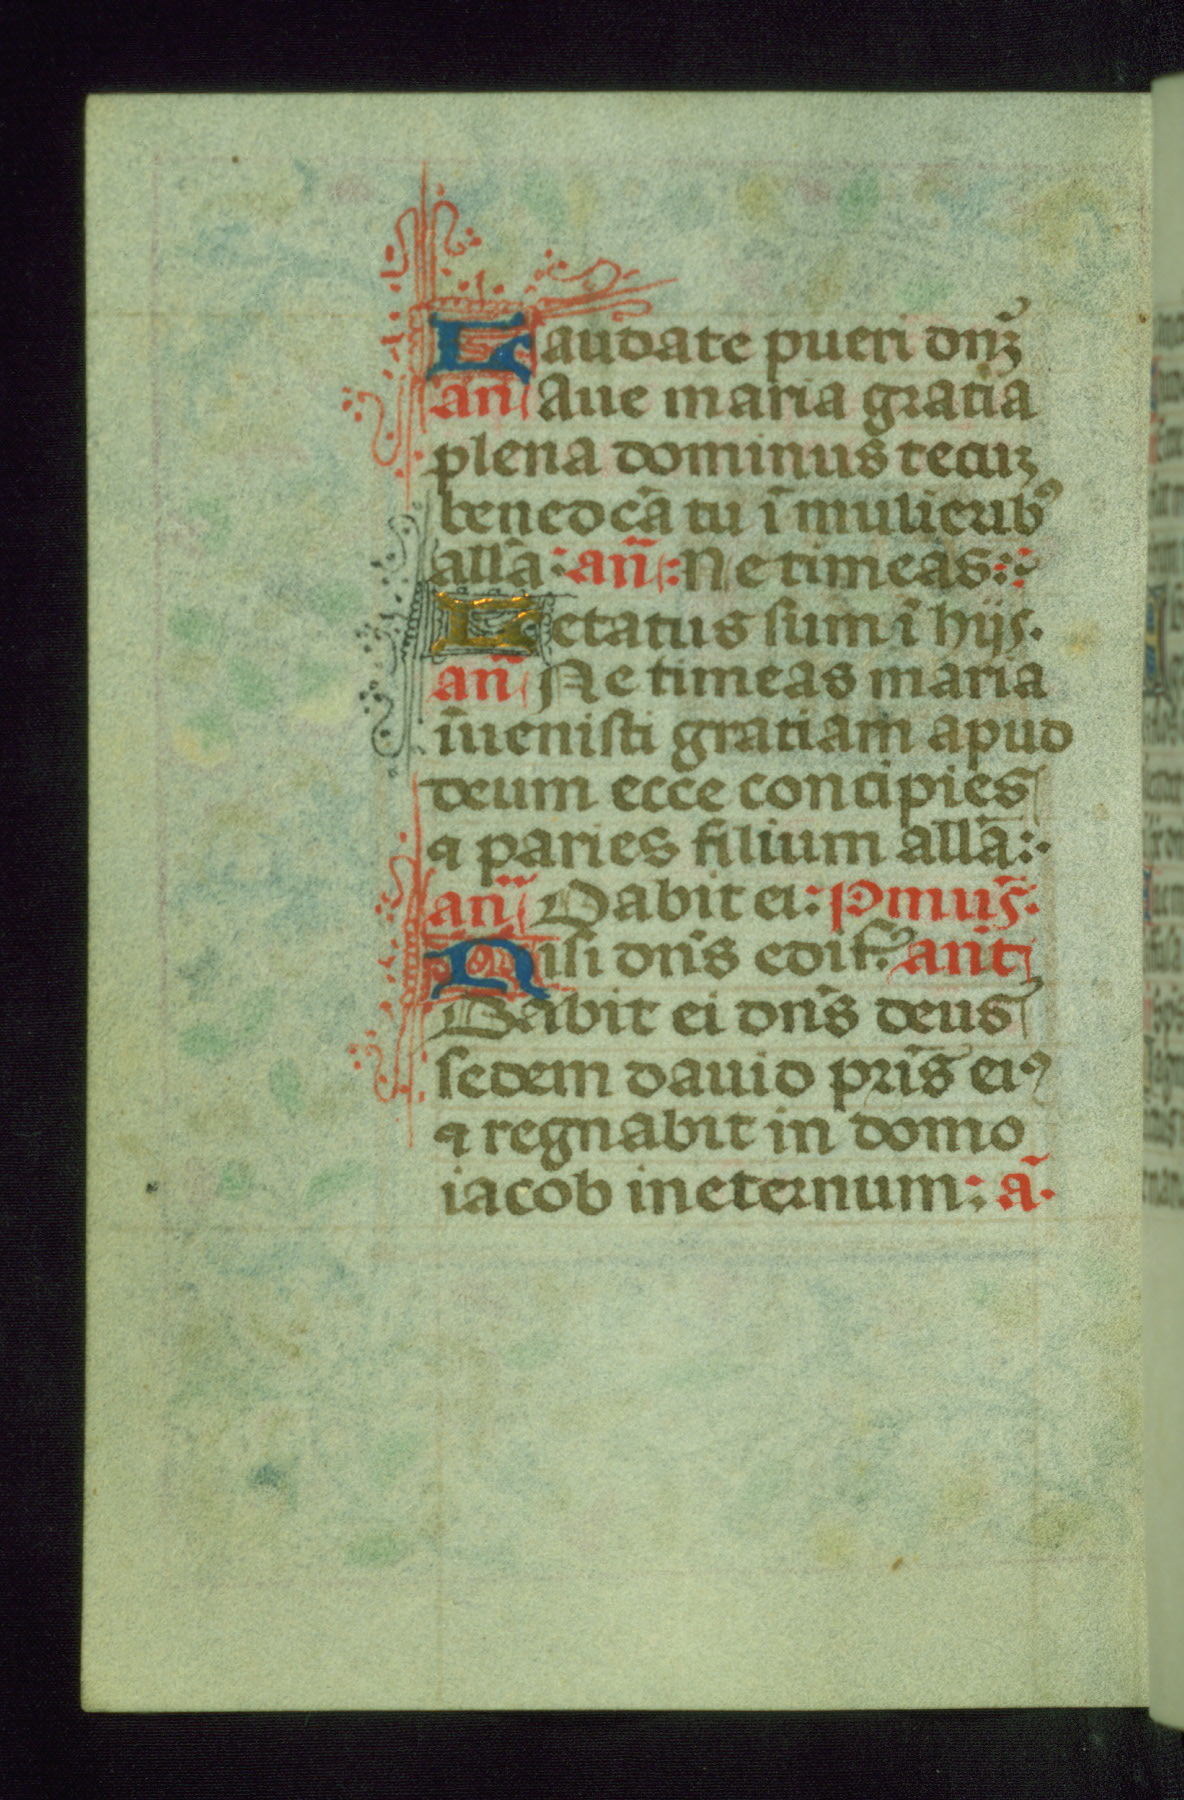 Laudate pueri dnꝫ̃
an̄ aue maria gratia
plena dominus tecuꝫ
benedc̃a tu ĩ mulierib⁹
all̃a : an̄ : Ne timeas :
Letatus sum ĩ hijs.
an̄ Ne timeas maria
ĩuenisti gratiam apud
deum ecce concipies
⁊ paries filium all̃a :
an̄ Dabit ei : Pmus̃ :
Nisi dns̃ edif. ant̃
Dabit ei dns̃ deus
sedem dauid pris̃ ei⁹
⁊ regnabit in domo
iacob in eternum : ã.